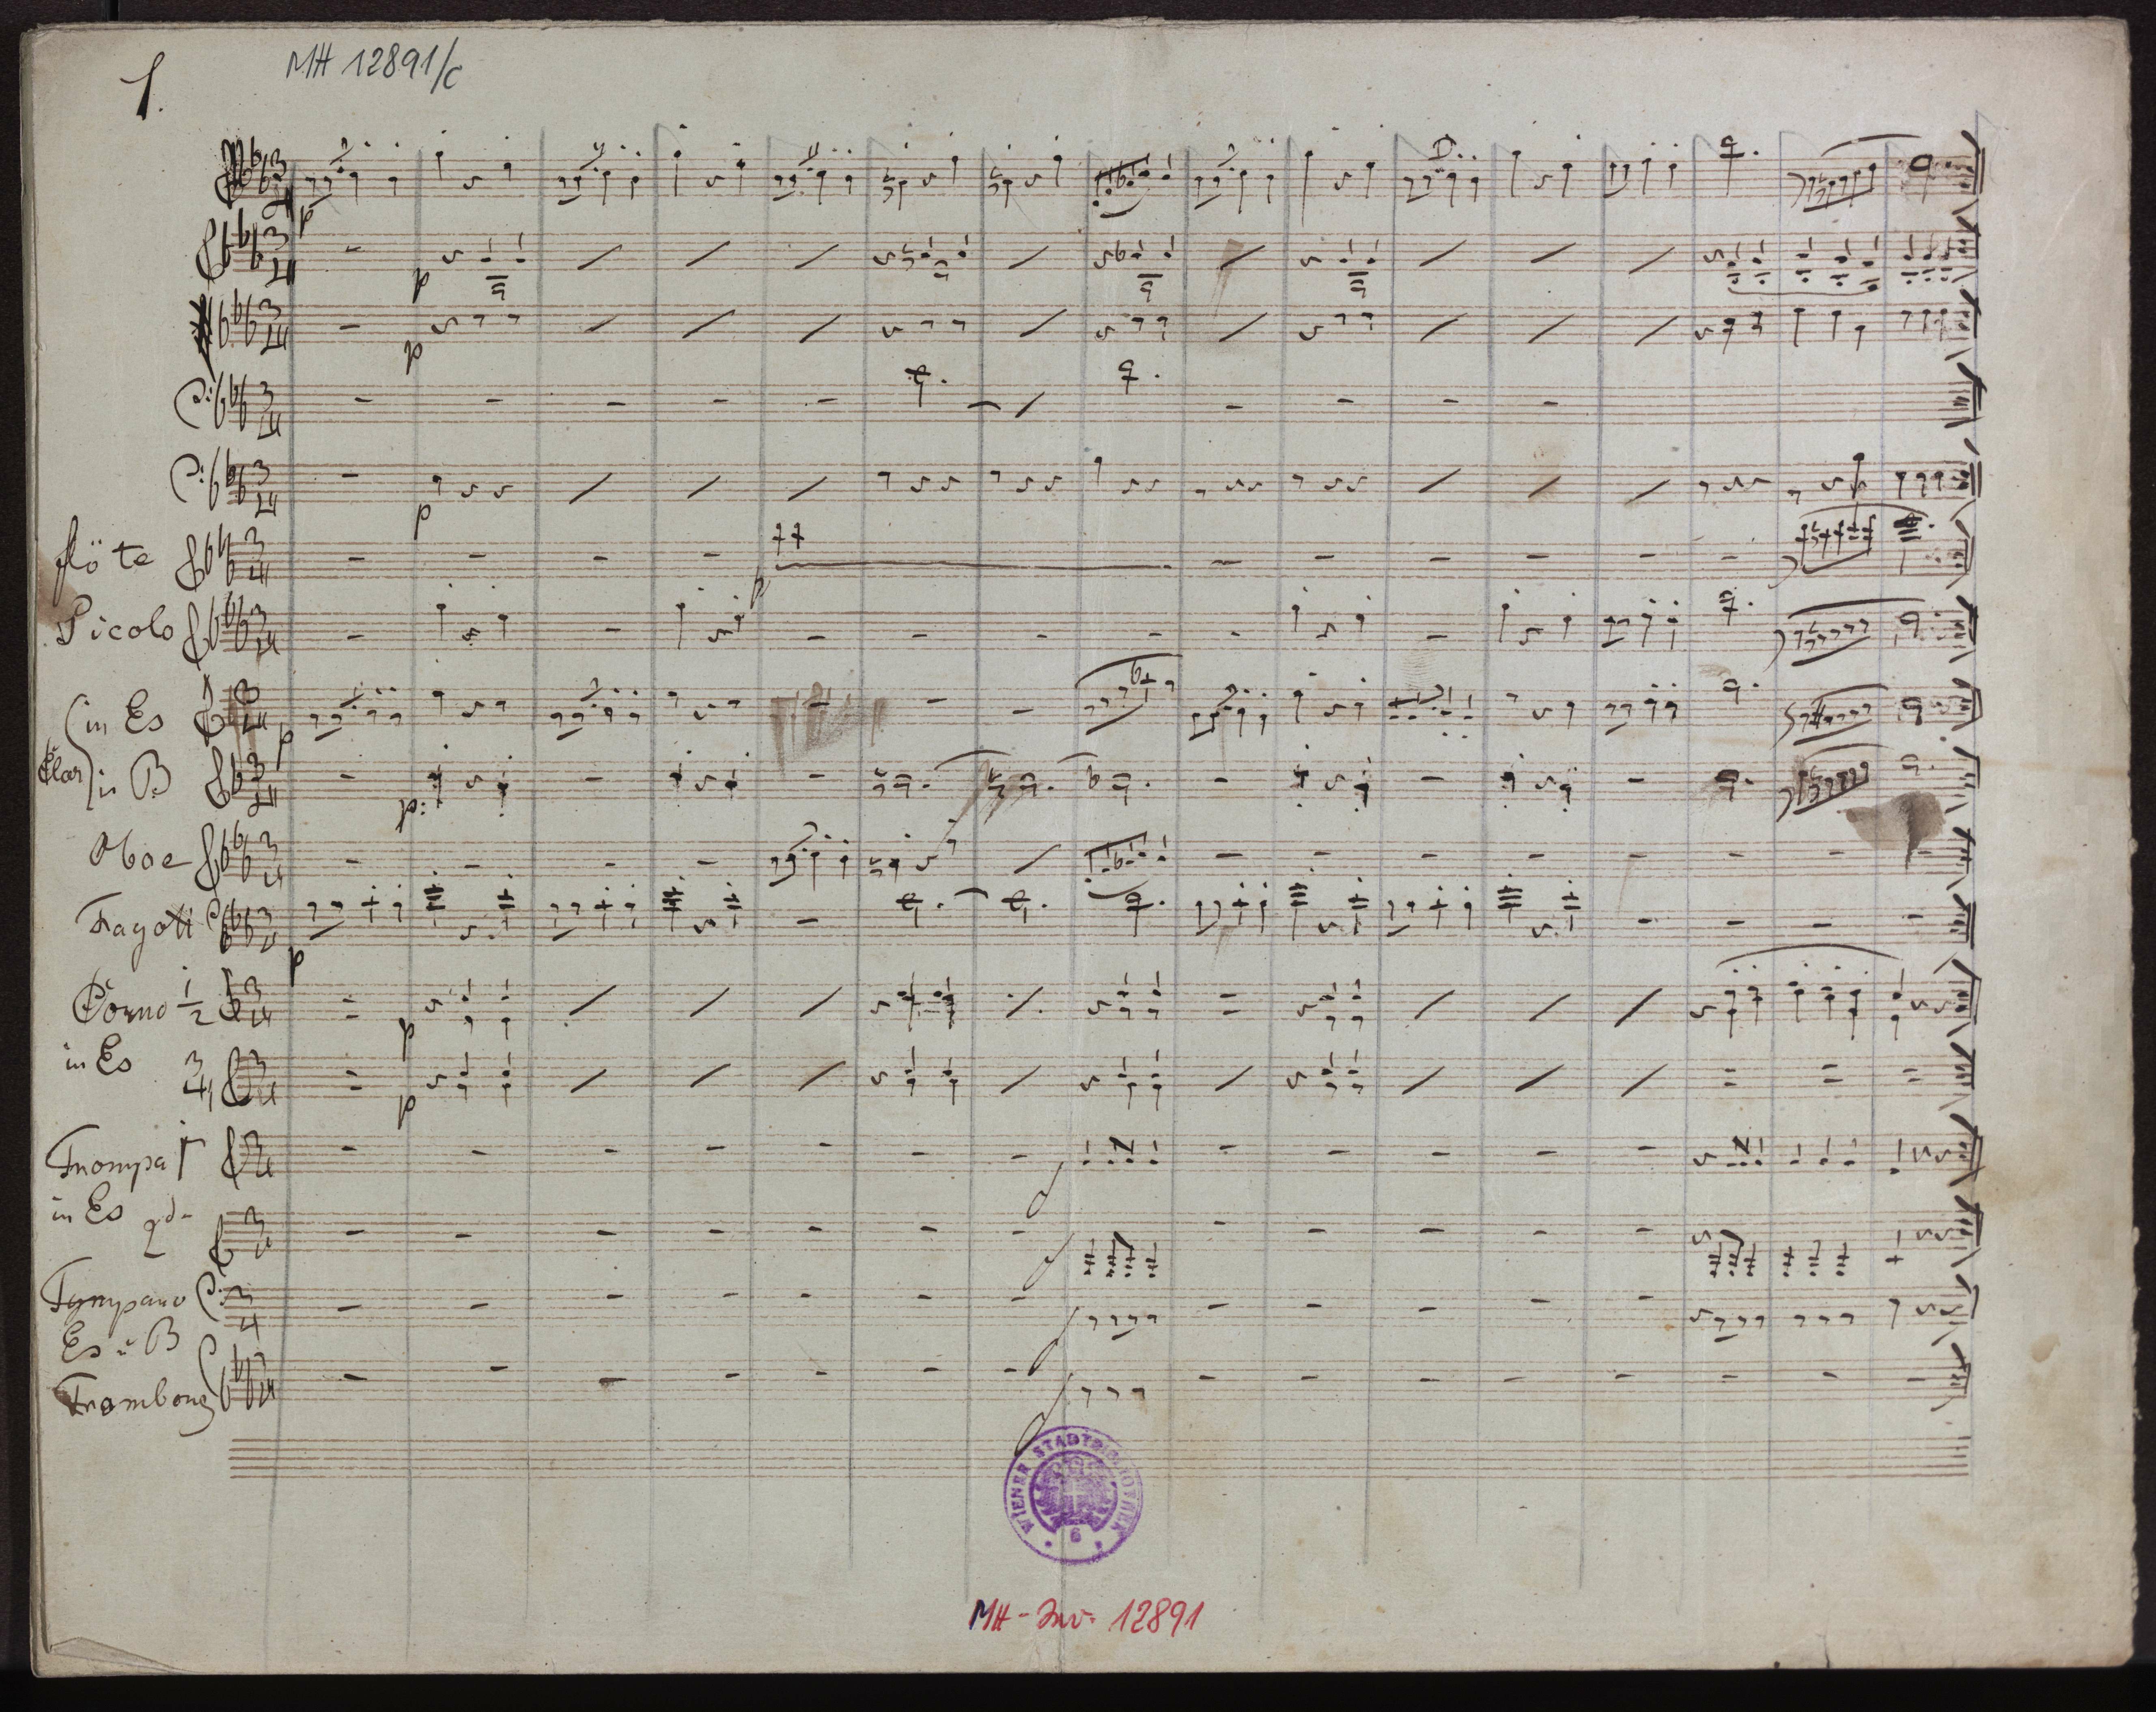 1.
MH 12891/c
flöte
Picolo
Clar
in Es
in B
Oboe
Fagott
Corno 1/2
in Es 3/4
Trompa 1
in Es 2d
Tympano
Es u B
Trombone
WIENER STADTBIBLIOTHEK
MH-Inv. 12891